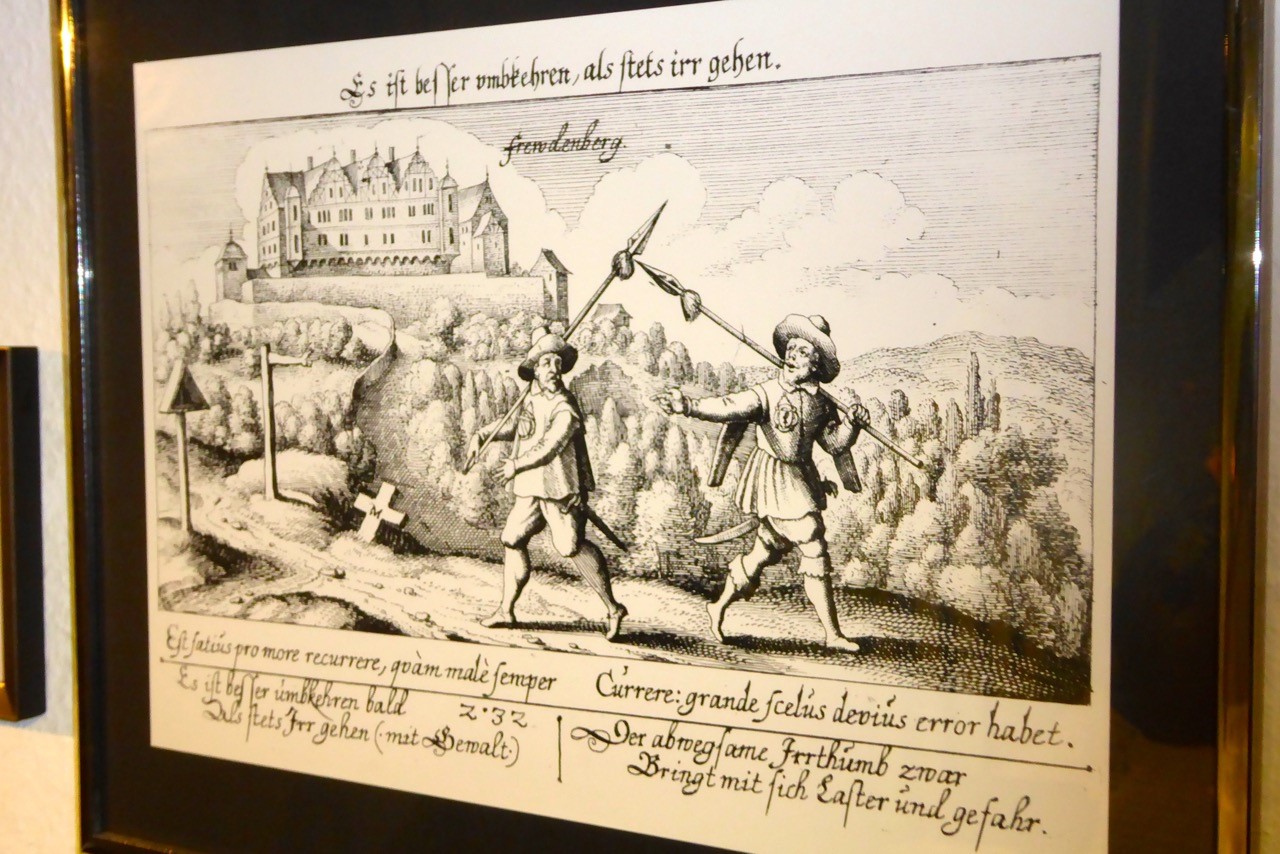 Es ist besser vmbkehren, als stets irr gehen.
frewdenberg.
M
Est satiús pro more recurrere, qvàm malè semper Cúrrere: grande scelús deviús error habet.
Es ist besser úmbkehren bald
Als stets Irr gehen (mit Gewalt.)
2.32
Der abwegsame Irrthúmb zwar
Bringt mit sich Laster únd gefahr.